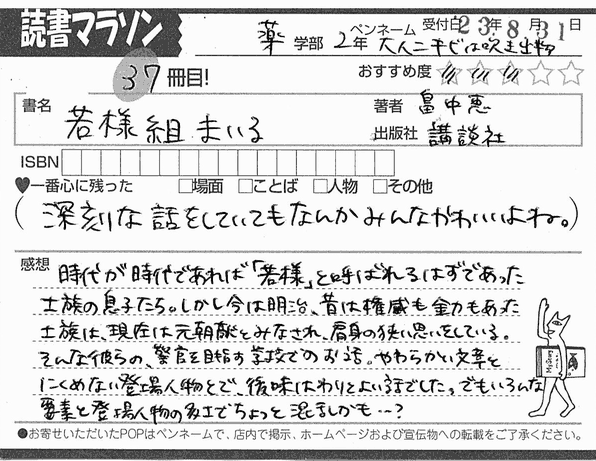 読書マラソン
薬 学部 2年 ペンネーム 受付日 23年 8月 31日
37冊目!
おすすめ度
書名 若様組まいる
著者 畠中恵
出版社 講談社
ISBN
♥一番心に残った □場面 □ことば □人物 □その他
(深刻な話をしていてもなんかみんなかわいいよね。)
感想 時代が時代であれば「若様」と呼ばれるはずであった
士族の息子たち。しかし今は明治、昔は権威も金力もあった
士族は、現在は元朝敵とみなされ、肩身の狭い思いをしている。
そんな彼らの、警官を目指す学校でのお話。やわらかい文章と
にくめない登場人物とで、後味はわりとよい話でした。でもいろんな
要素と登場人物の多さでちょっと混乱しかも…?
●お寄せいただいたPOPはペンネームで、店内で掲示、ホームページおよび宣伝物への転載をご了承ください。